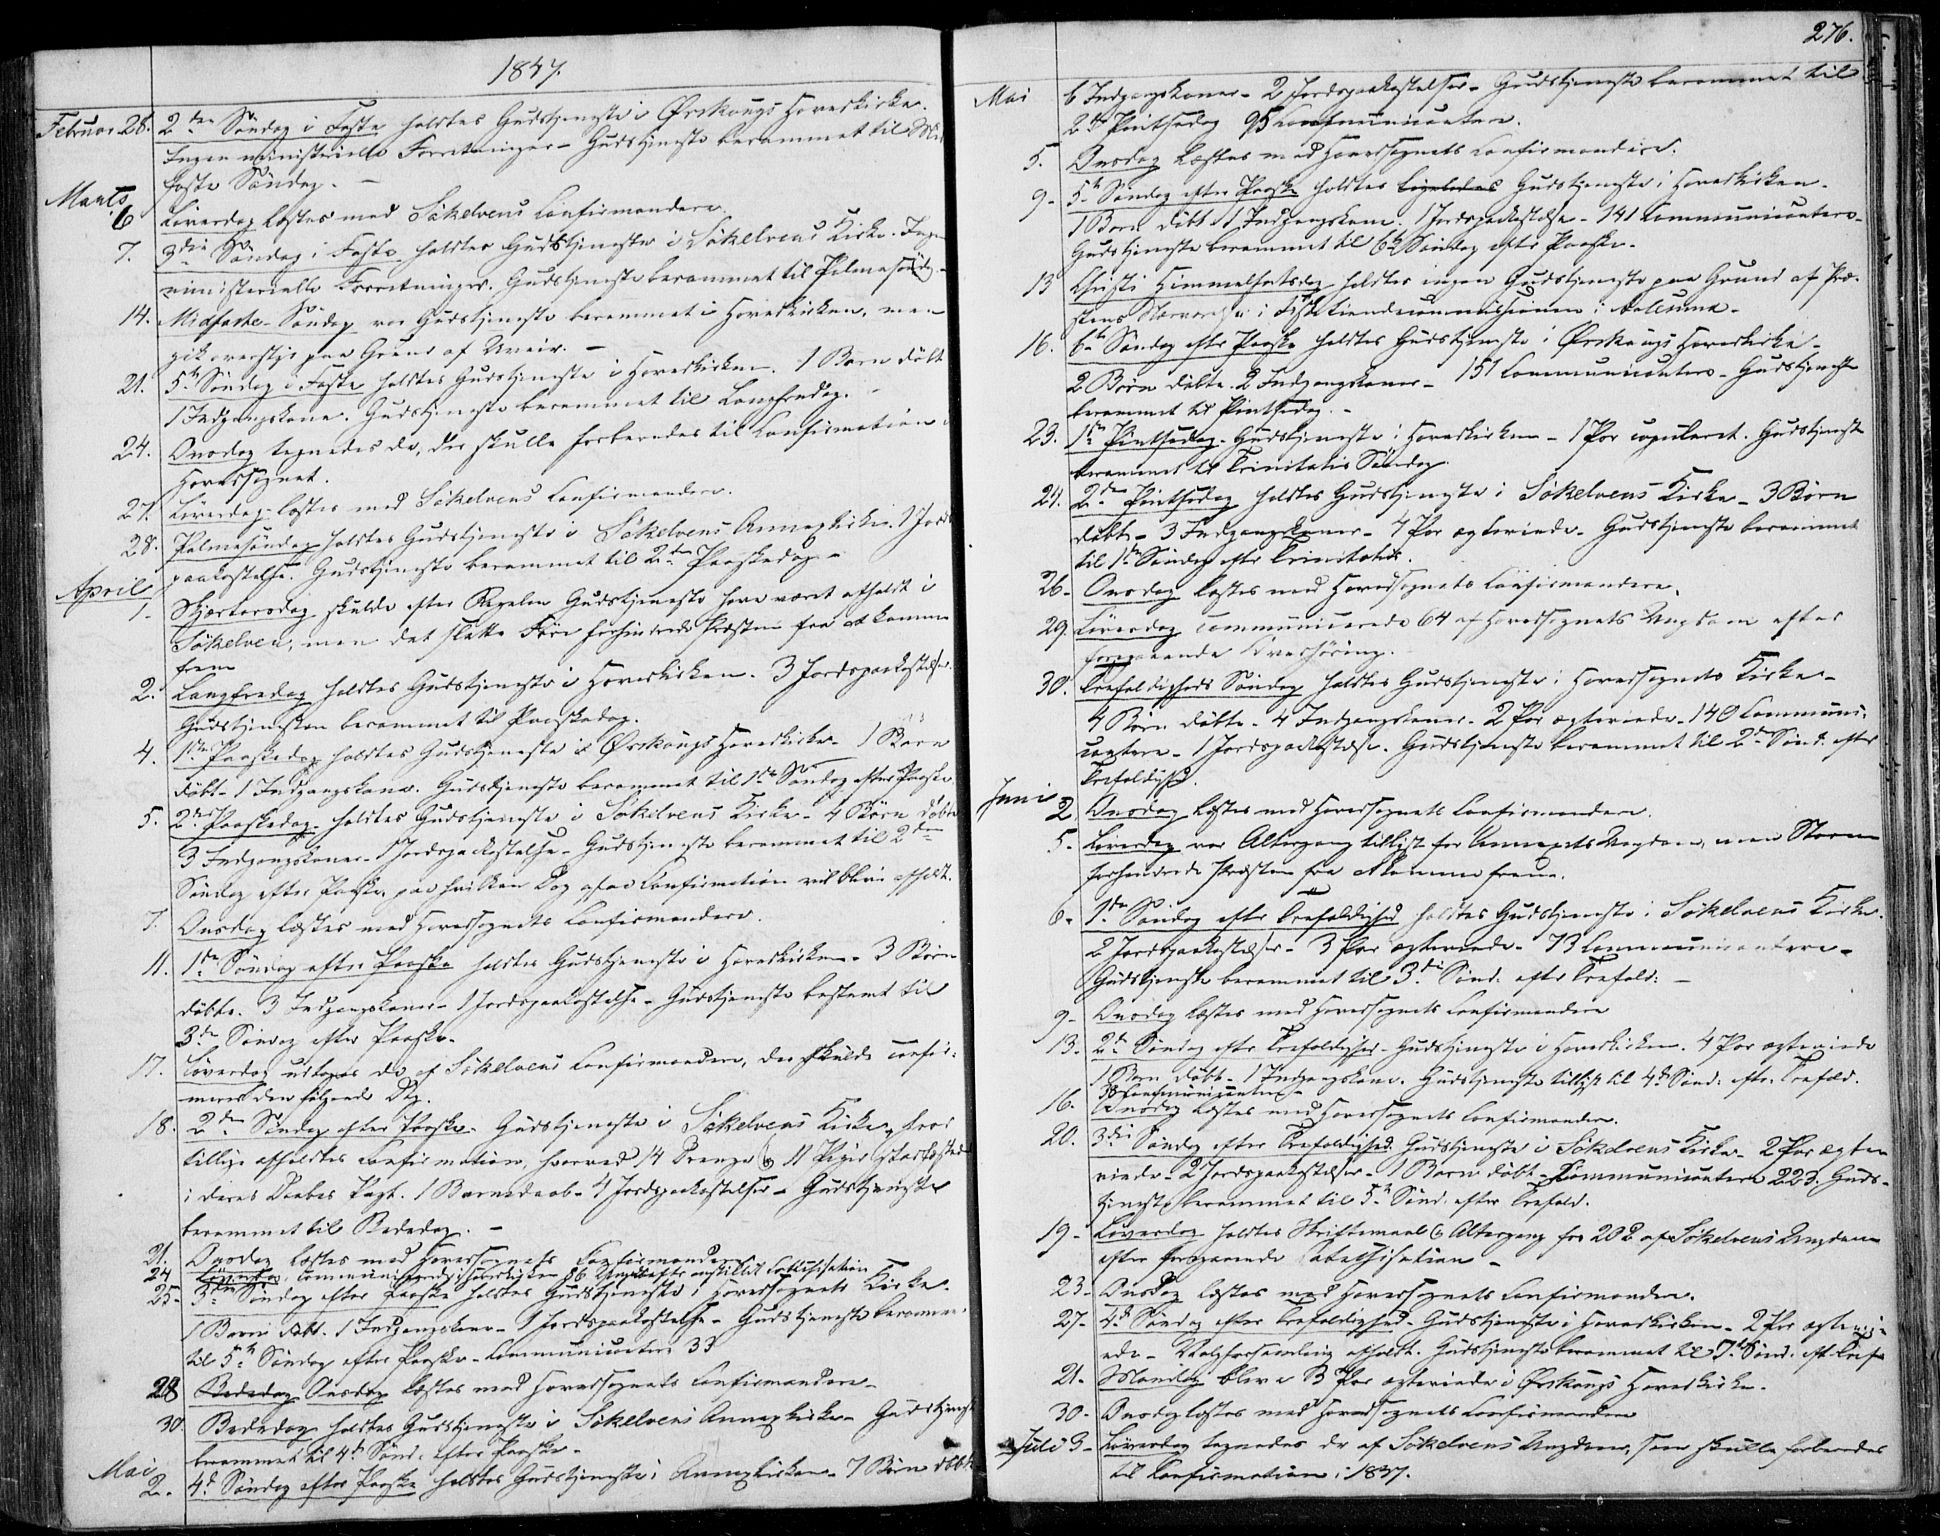 1847.
Februar 28. 2den Søndag i Faste holdtes Gudstjeneste i Ørskougs Hovedkirke.
Ingen ministerielle Forretninger – Gudstjeneste berammet til Mid
faste Søndag. –
Marts
6 Løverdag læstes med Søkelvens Confirmandere.
7. 3die Søndag i Faste holdtes Gudstjeneste i Søkelvens Kirke. Ingen
ministerielle Forretninger. Gudstjeneste berammet til Palmesøndag.
14. Midfaste-Søndag var Gudstjeneste berammet i Hovedkirken, men
gik overstyr paa Grund af Uveir. –
21. 5te Søndag i Faste holdtes Gudstjeneste i Hovedkirken. 1 Barn døbt
1 Indgangskone. Gudstjeneste berammet til Langfredag.
24. Onsdag tegnedes de, der skulle forberedes til Confirmation i
Hovedsognet.
27. Løverdag læstes med Søkelvens Confirmandere.
28. Palmesøndag holdtes Gudstjeneste i Søkelvens Annexkirke. 1 Jords
paakastelse. Gudstjeneste berammet til 2den Paaskedag –
April
1. Skjærtorsdag skulde efter Regelen Gudstjeneste have været afholdt i
Søkelven, men det slette Føre forhindrede Præsten fra at komme
frem
2. Langfredag holdtes Gudstjeneste i Hovedkirken. 3 Jordspaakastelser.
Gudstjenesten berammet til Paaskedag.
4. 1ste Paaskedag holdtes Gudstjeneste i Ørskougs Hovedkirke – 1 Barn
døbt – 1 Indgangskone. Gudstjeneste berammet til 1ste Søndag efter Paaske
5. 2den Paaskedag holdtes Gudstjeneste i Søkelvens Kirke – 4 Børn døbte
3 Indgangskoner – 1 Jordspaakastelse – Gudstjeneste berammet til 2den
Søndag efter Paaske, paa hvilken Dag ogsaa Confirmation vil blive afholdt.
7. Onsdag læstes med Hovedsognets Confirmandere.
11. 1ste Søndag efter Paaske holdtes Gudstjeneste i Hovedkirken – 3 Børn
døbte. 3 Indgangskoner – 1 Jordspaakastelse – Gudstjeneste bestemt til
3die Søndag efter Paaske.
17. Løverdag udtoges de af Søkelvens Confirmandere, der skulde confir-
meres den følgende Dag.
18. 2den Søndag efter Paaske – Gudstjeneste i Søkelvens Kirke, hvor
tillige afholdtes Confirmation, hvorved 14 Drenge og 11 Piger stadfæstedes
i deres Daabes Pagt. 1 Barnedaab – 4 Jordspaakastelser – Gudstjeneste
berammet til Bededag. –
21. Onsdag læstes med Hovedsognets Confirmandere
24 Løverdag communicerede i Hovedkirken 86 Unge efter anstillet Catechisation
25. 3die Søndag efter Paaske holdtes Gudstjeneste i Hovedsognets Kirke.
1 Barn døbt. 1 Indgangskone – 1 Jordspaakastelse – Gudstjeneste berammet
til 5te Søndag efter Paaske – Communicanter 33
28 Bededag Onsdag læstes med Hovedsognets Confirmandere
30. Bededag holdtes Gudstjeneste i Søkelvens Annexkirke – Gudstjeneste
berammet til 4de Sønd. efter Paaske –
Mai
2. 4de Søndag efter Paaske holdtes Gudstjeneste i Annexkirken – 7 Børn døbte
276.
Mai 6 Indgangskoner – 2 Jordspaakastelser – Gudstjeneste berammet til
2den Pintsedag 95 Communicantere.
5. Onsdag læstes med Hovedsognets Confirmandere.
9 – 5te Søndag efter Paaske holdtes ligeledes Gudstjeneste i Hovedkirken.
1 Barn døbt 1 Indgangskone. 1 Jordspaakastelse – 141 Communicantere –
Gudstjeneste berammet til 6te Søndag efter Paaske.
13 Christi Himmelfartsdag holdtes ingen Gudstjeneste paa Grund af Præ-
stens Nærværelse i Fisketiendecommissionen i Aalesund –
16. 6te Søndag efter Paaske holdtes Gudstjeneste i Ørskougs Hovedkirke –
2 Børn døbte. 2 Indgangskoner – 151 Communicantere – Gudstjeneste
berammet til Pintsedag. –
23. 1ste Pintsedag – Gudstjeneste i Hovedkirken – 1 Par copuleret. Gudstjeneste
berammet til Trinitatis Søndag.
24. 2den Pintsedag holdtes Gudstjeneste i Søkelvens Kirke – 3 Børn
døbte – 3 Indgangskoner – 4 Par ægteviede – Gudstjeneste berammet
til 1ste Søndag efter Trinitatis.
26 – Onsdag læstes med Hovedsognets Confirmandere.
29 Løverdag communicerede 64 af Hovedsognets Ungdom efter
foregaaende Overhøring.
30. Trefoldigheds Søndag holdtes Gudstjeneste i Hovedsognets Kirke –
4 Børn døbte – 4 Indgangskoner – 2 Par ægteviede – 140 Communi-
cantere – 1 Jordspaakastelse. Gudstjeneste berammet til 2den Sønd. efter
Trefoldighed.
Juni
2. Onsdag læstes med Hovedsognets Confirmandere.
5. Løverdag var Altergang tillyst for Annexets Ungdom, men Storm
forhindrede Præsten fra at komme frem.
6 – 1ste Søndag efter Trefoldighed holdtes Gudstjeneste i Søkelvens Kirke.
2 Jordspaakastelser – 3 Par ægteviede – 73 Communicantere –
Gudstjeneste berammet til 3die Sønd. efter Trefold. –
9 – Onsdag læstes med Hovedsognets Confirmandere
13. 2den Søndag efter Trefoldighed – Gudstjeneste i Hovedkirken. 4 Par ægteviede
1 Barn døbt – 1 Indgangskone. Gudstjeneste tillyst til 4de Sønd. efter Trefold.
38 Communicantere –
16. Onsdag læstes med Hovedsognets Confirmander.
20. 3die Søndag efter Trefoldighed Gudstjeneste i Søkelvens Kirke – 2 Par ægte
viede – 2 Jordspaakastelser – 1 Barn døbt – Communicantere 223. Guds-
tjeneste berammet til 5te Sønd. efter Trefold.
19 – Løverdag holdtes Skriftemaal og Altergang for 202 af Søkelvens Ungdom
efter foregaaende Catechisation –
23 – Onsdag læstes med Hovedsognets Confirmander.
27 – 4de Søndag efter Trefoldighed – Gudstjeneste i Hovedkirken – 2 Par ægtevi-
ede – Valgforsamling afholdt. Gudstjeneste berammet til 7de Sønd. eft. Tref
21 – Mandag bleve 3 Par ægteviede i Ørskougs Hovedkirke.
30 – Onsdag læstes med Hovedsognets Confirmandere
Juli 3 – Løverdag tegnedes de af Søkelvens Ungdom, som skulle forberedes
til Confirmation i 1837.